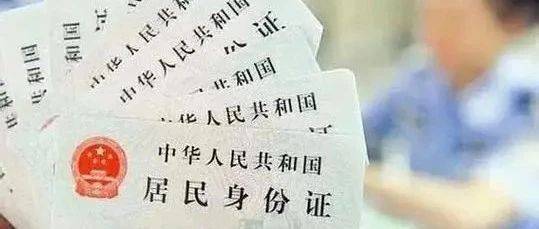 中华人民共和国
中华人民共和国
中华人民共和国
中华人民共和国
居民身份证